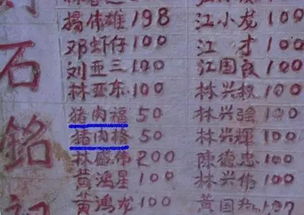 杨伟雄 198 江小龙 100
邓虾仔 100 江才 100
刘亚三 100 江国良 100
林亚东 100 林兴叔 100
猪肉福 50 林兴强 100
猪肉桥 50 林兴辉 100
林盛伟 200 陈德忠 100
黄鸿星 100 林兴 100
黄鸿龙 100 黄国
石
铭